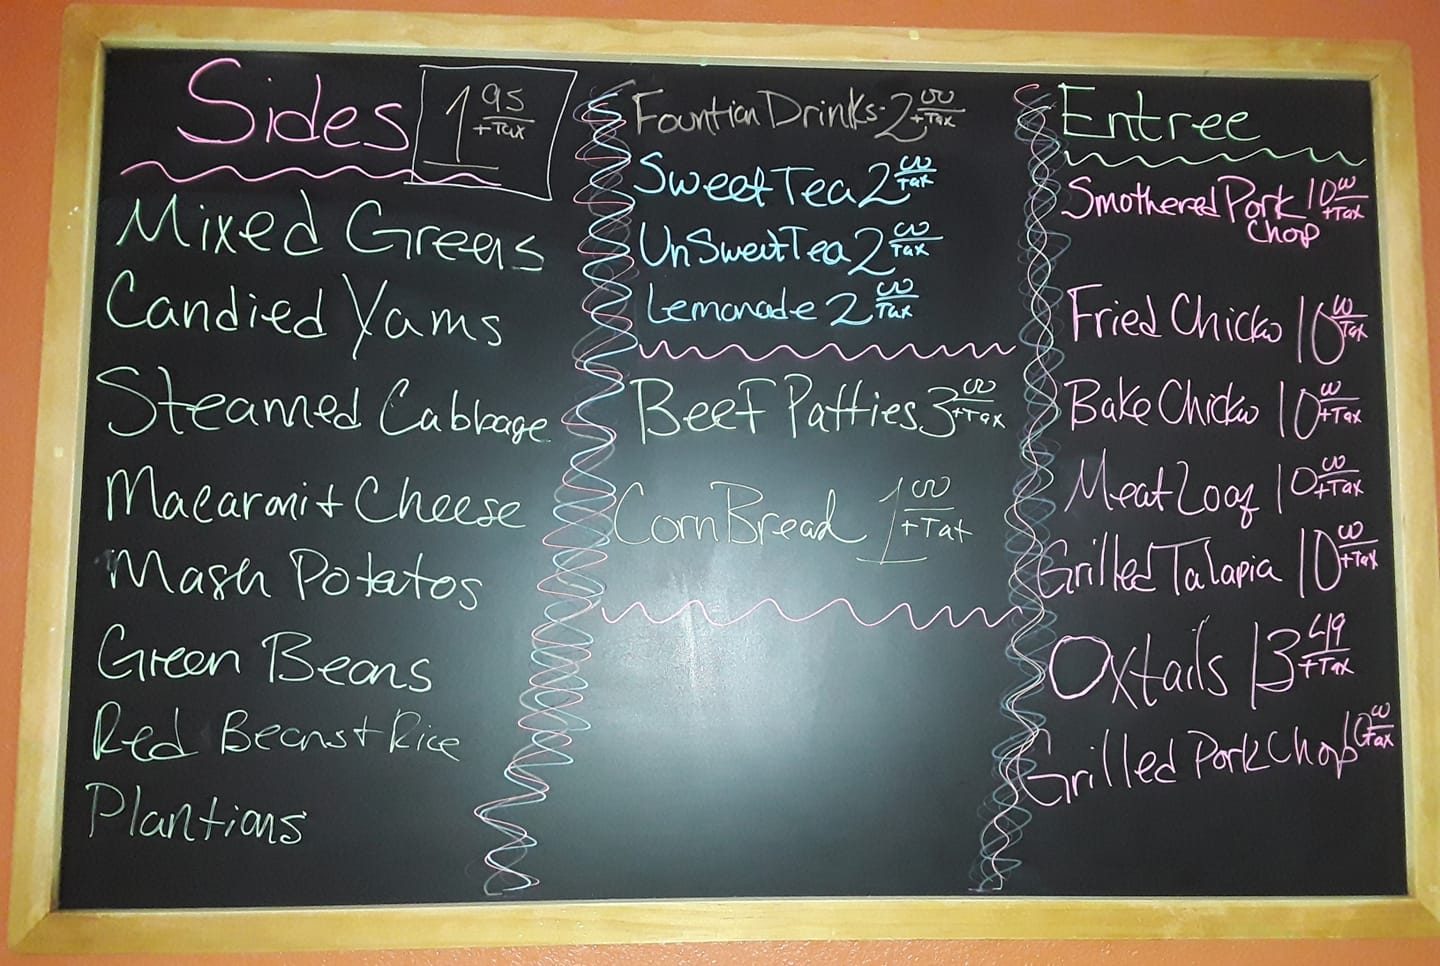 Sides 1 95 +Tax
Mixed Greens
Candied Yams
Steamed Cabbage
Macaroni + Cheese
Mash Potatos
Green Beans
Red Beans + Rice
Plantions
Fountian Drinks - 2 00 +Tax
Sweet Tea 2 00 Tax
UnSweet Tea 2 00 Tax
Lemonade 2 00 Tax
Beef Patties 3 00 +Tax
Corn Bread 1 00 +Tax
Entree
Smothered Pork 10 00 +Tax
Chop
Fried Chicken 10 00 +Tax
Bake Chicken 10 00 +Tax
Meat Loaf 10 00 +Tax
Grilled Talapia 10 00 +Tax
Oxtails 13 49 +Tax
Grilled Pork Chop 10 00 +Tax